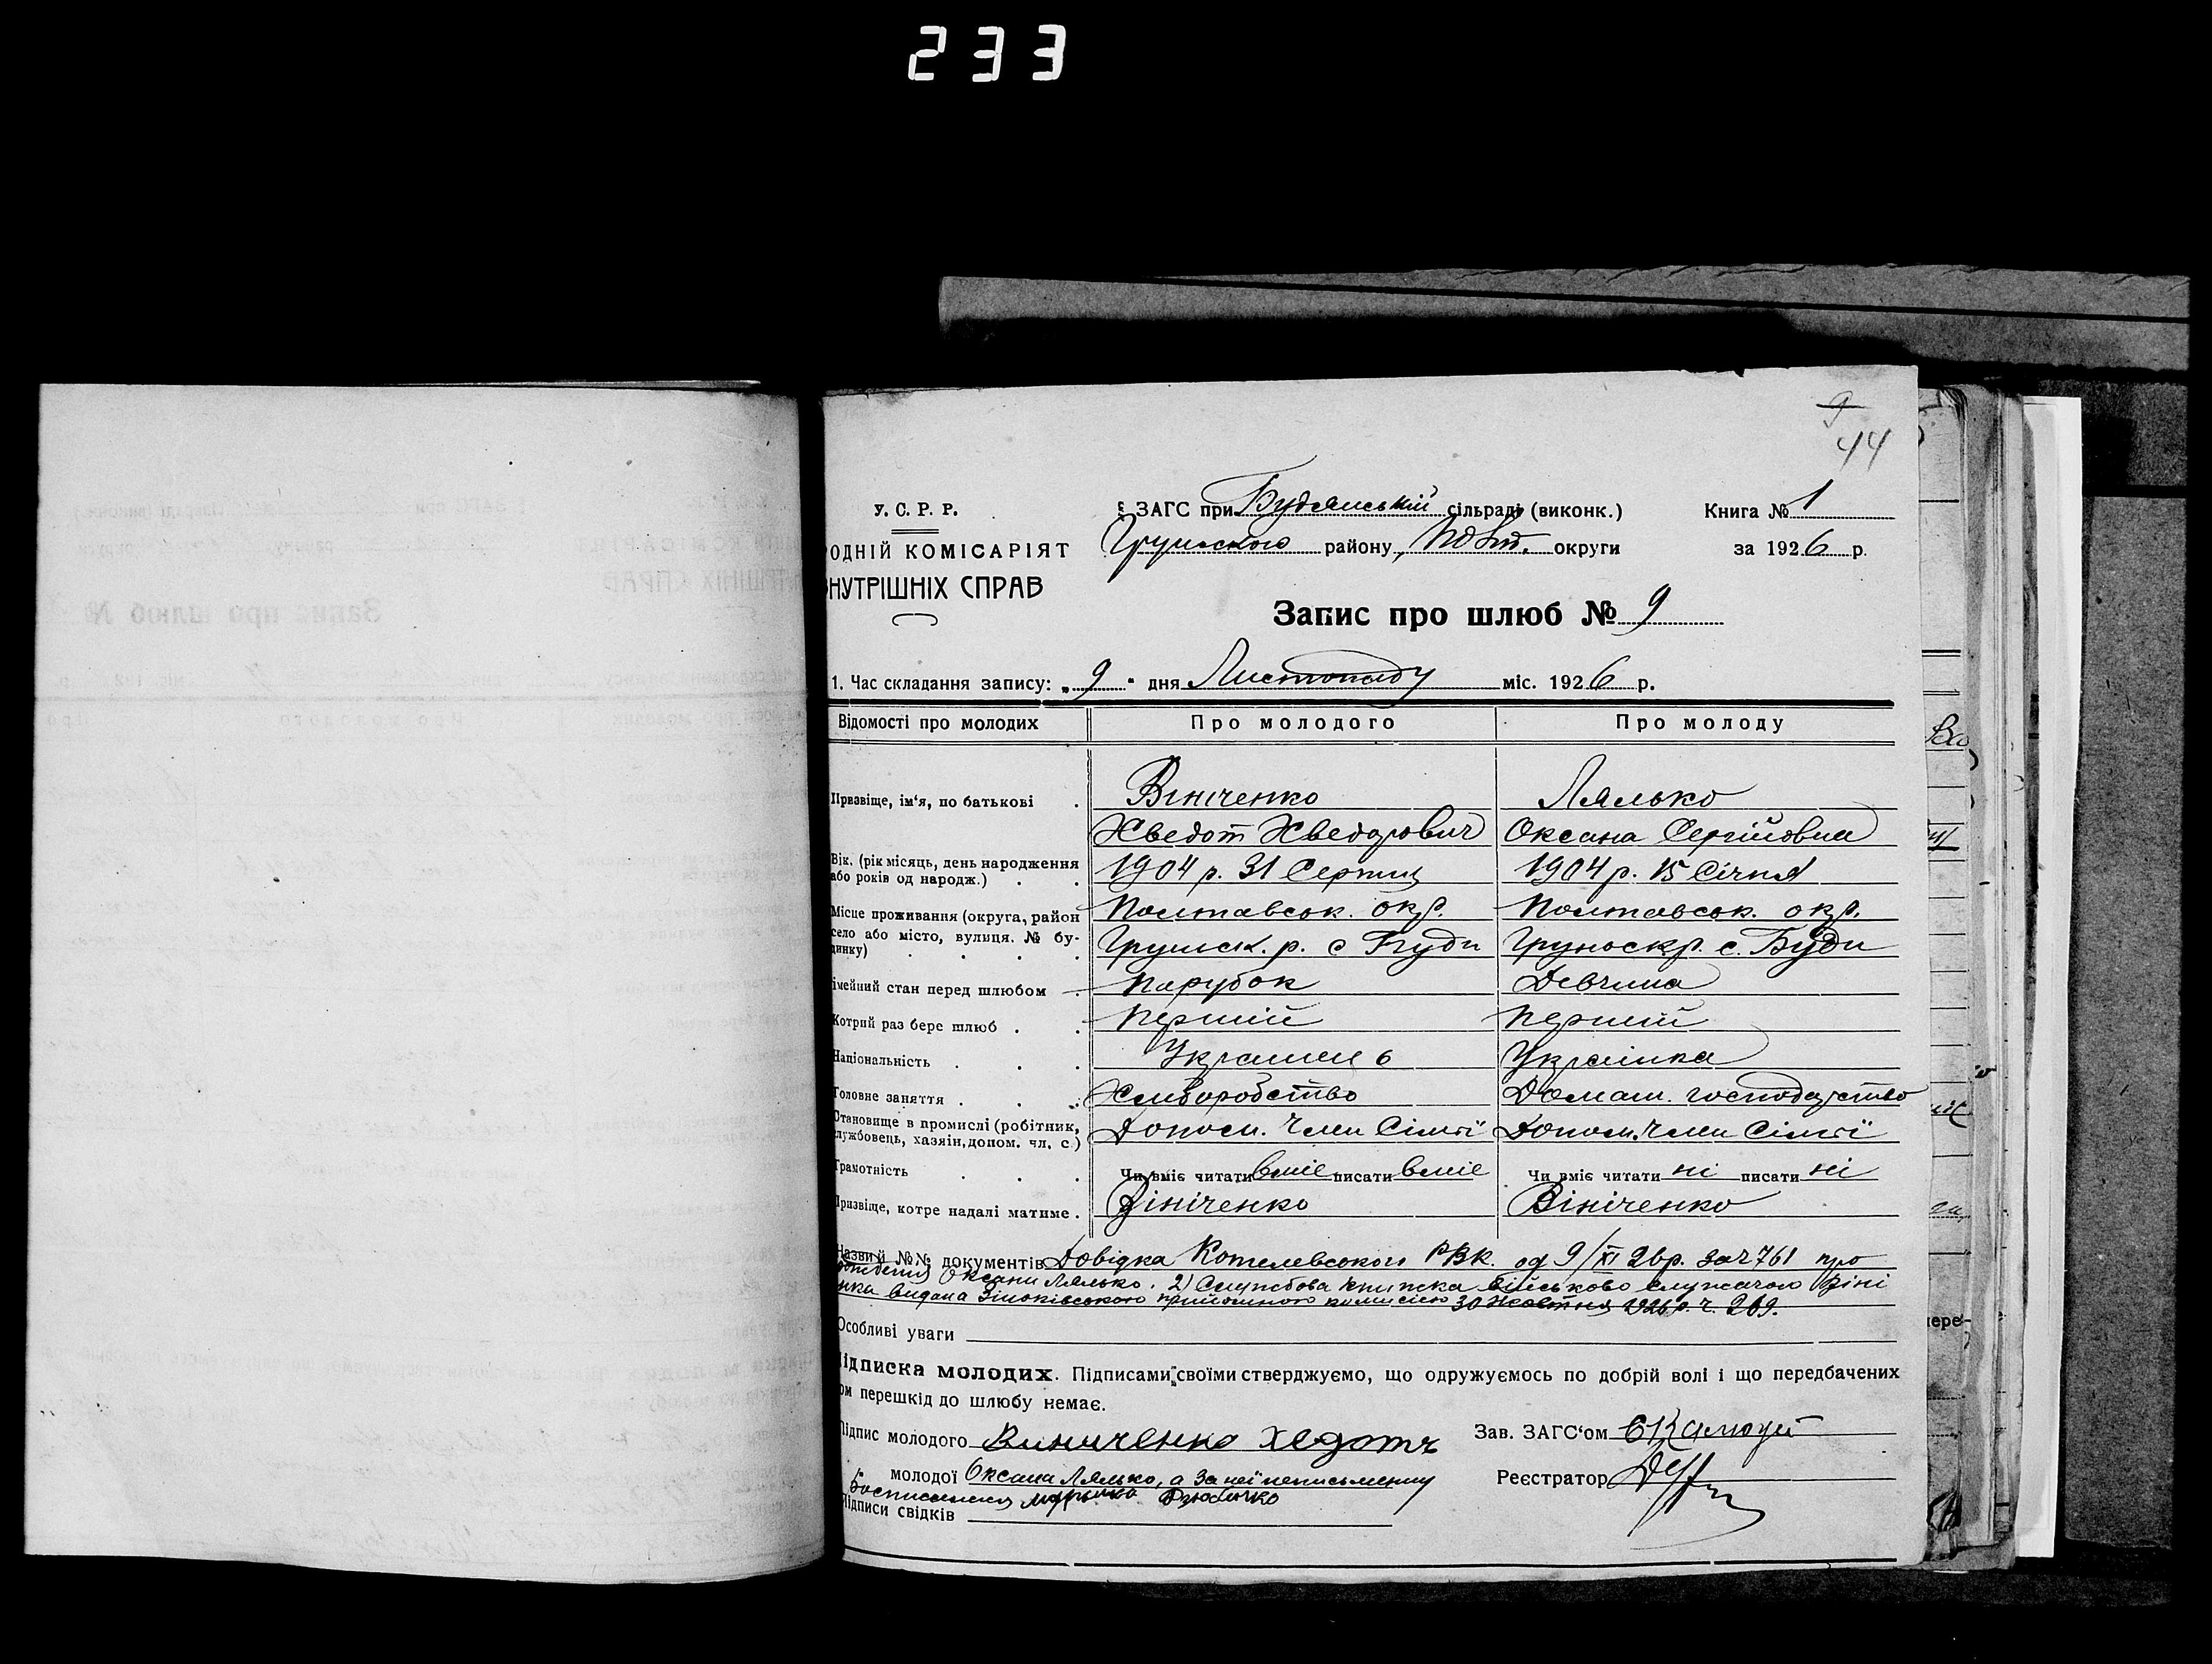 233
9
44
У. С. Р. Р.
ЗАГС при Будянській сільраді (виконк.)
Книга № 1
ОДНІЙ КОМІСАРІЯТ
Грунського району, Полт. округи
за 1926 р.
НУТРІШНІХ СПРАВ
Запис про шлюб № 9
1. Час складання запису: „ 9 “ дня Листопаду міс. 1926 р.
Відомості про молодих Про молодого Про молоду
Прізвіще, ім'я, по батькові . Вініченко Лялько
Хведот Хведорович Оксана Сергійовна
Вік. (рік місяць, день народження 1904 р. 31 Серпня 1904 р. 15 Січня
або років од народж.) . .
Місце проживання (округа, район Полтавськ. окр. Полтавськ. окр.
село або місто, вулиця. № бу- Грунськ. р. с Буди Грунськ р. с. Буди
динку) . . . .
імейний стан перед шлюбом . Парубок Девчина
Котрий раз бере шлюб . . Перший Перший
Національність . . . Украинець Українка
Головне заняття . . . Хліборобство Домаш. господарство
Становище в промислі (робітник, Допом. Член Сімьї Допом. Член Сімьї
лужбовець, хазяін, допом. чл. с.)
Грамотність . . . Чи вміє читати вміє писати вміє Чи вміє читати ні писати ні
Прізвіще, котре надалі матиме . Вініченко Вініченко
Назви й №№ документів Довідка Котелевського РВК. од 9/XI 26р. за ч 761 про
Оксани Лялько. 2) Службова книжка військово служачого Віні
нка видана Зіньківською прийомною комисією 30 Жовтня 1926 р. ч. 269.
Особливі уваги
Підписка молодих. Підписами своїми стверджуємо, що одружуємось по добрій волі і що передбачених
ом перешкід до шлюбу немає.
Підпис молодого Виниченко Хедотъ
Зав. ЗАГС'ом
молодої Оксана Лялько, а за неї неписьменну
Реєстратор
Підписи свідків